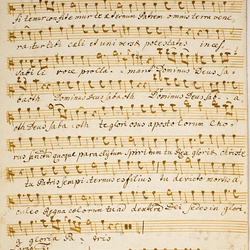 fitemur te eternum Patrem omnis terra vene
ratur tibi celi et universe potestates inces
sabili voce procla - mant Dominus Deus Sa
baoth Dominus Deus sabaoth Dominus Deus Sa - a
oth Deus Saba - oth te gloriosus apostolorum Cho
rus sanctum quoque paraclytum Spiritum tu Rex gloriæ Christe
tu Patris sempi - ternus es filius tu devicto mortis a
culeo Regna celorum tu ad dexteram Dei sedes in glori
a gloria Pa - tris